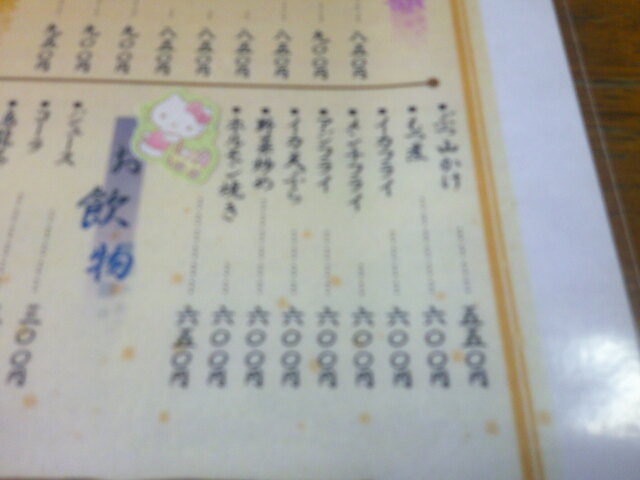 八五〇円
九〇〇円
八五〇円
八五〇円
八五〇円
八五〇円
九〇〇円
九〇〇円
九五〇円
山かけ 五五〇円
煮 六〇〇円
・イカフライ 六〇〇円
・メンチフライ 六〇〇円
・アジフライ 六〇〇円
・イカ天ぷら 六〇〇円
・野菜炒め 六〇〇円
・ホルモン焼き 六〇〇円
六五〇円
お飲物
・ジュース 三〇〇円
・コーラ